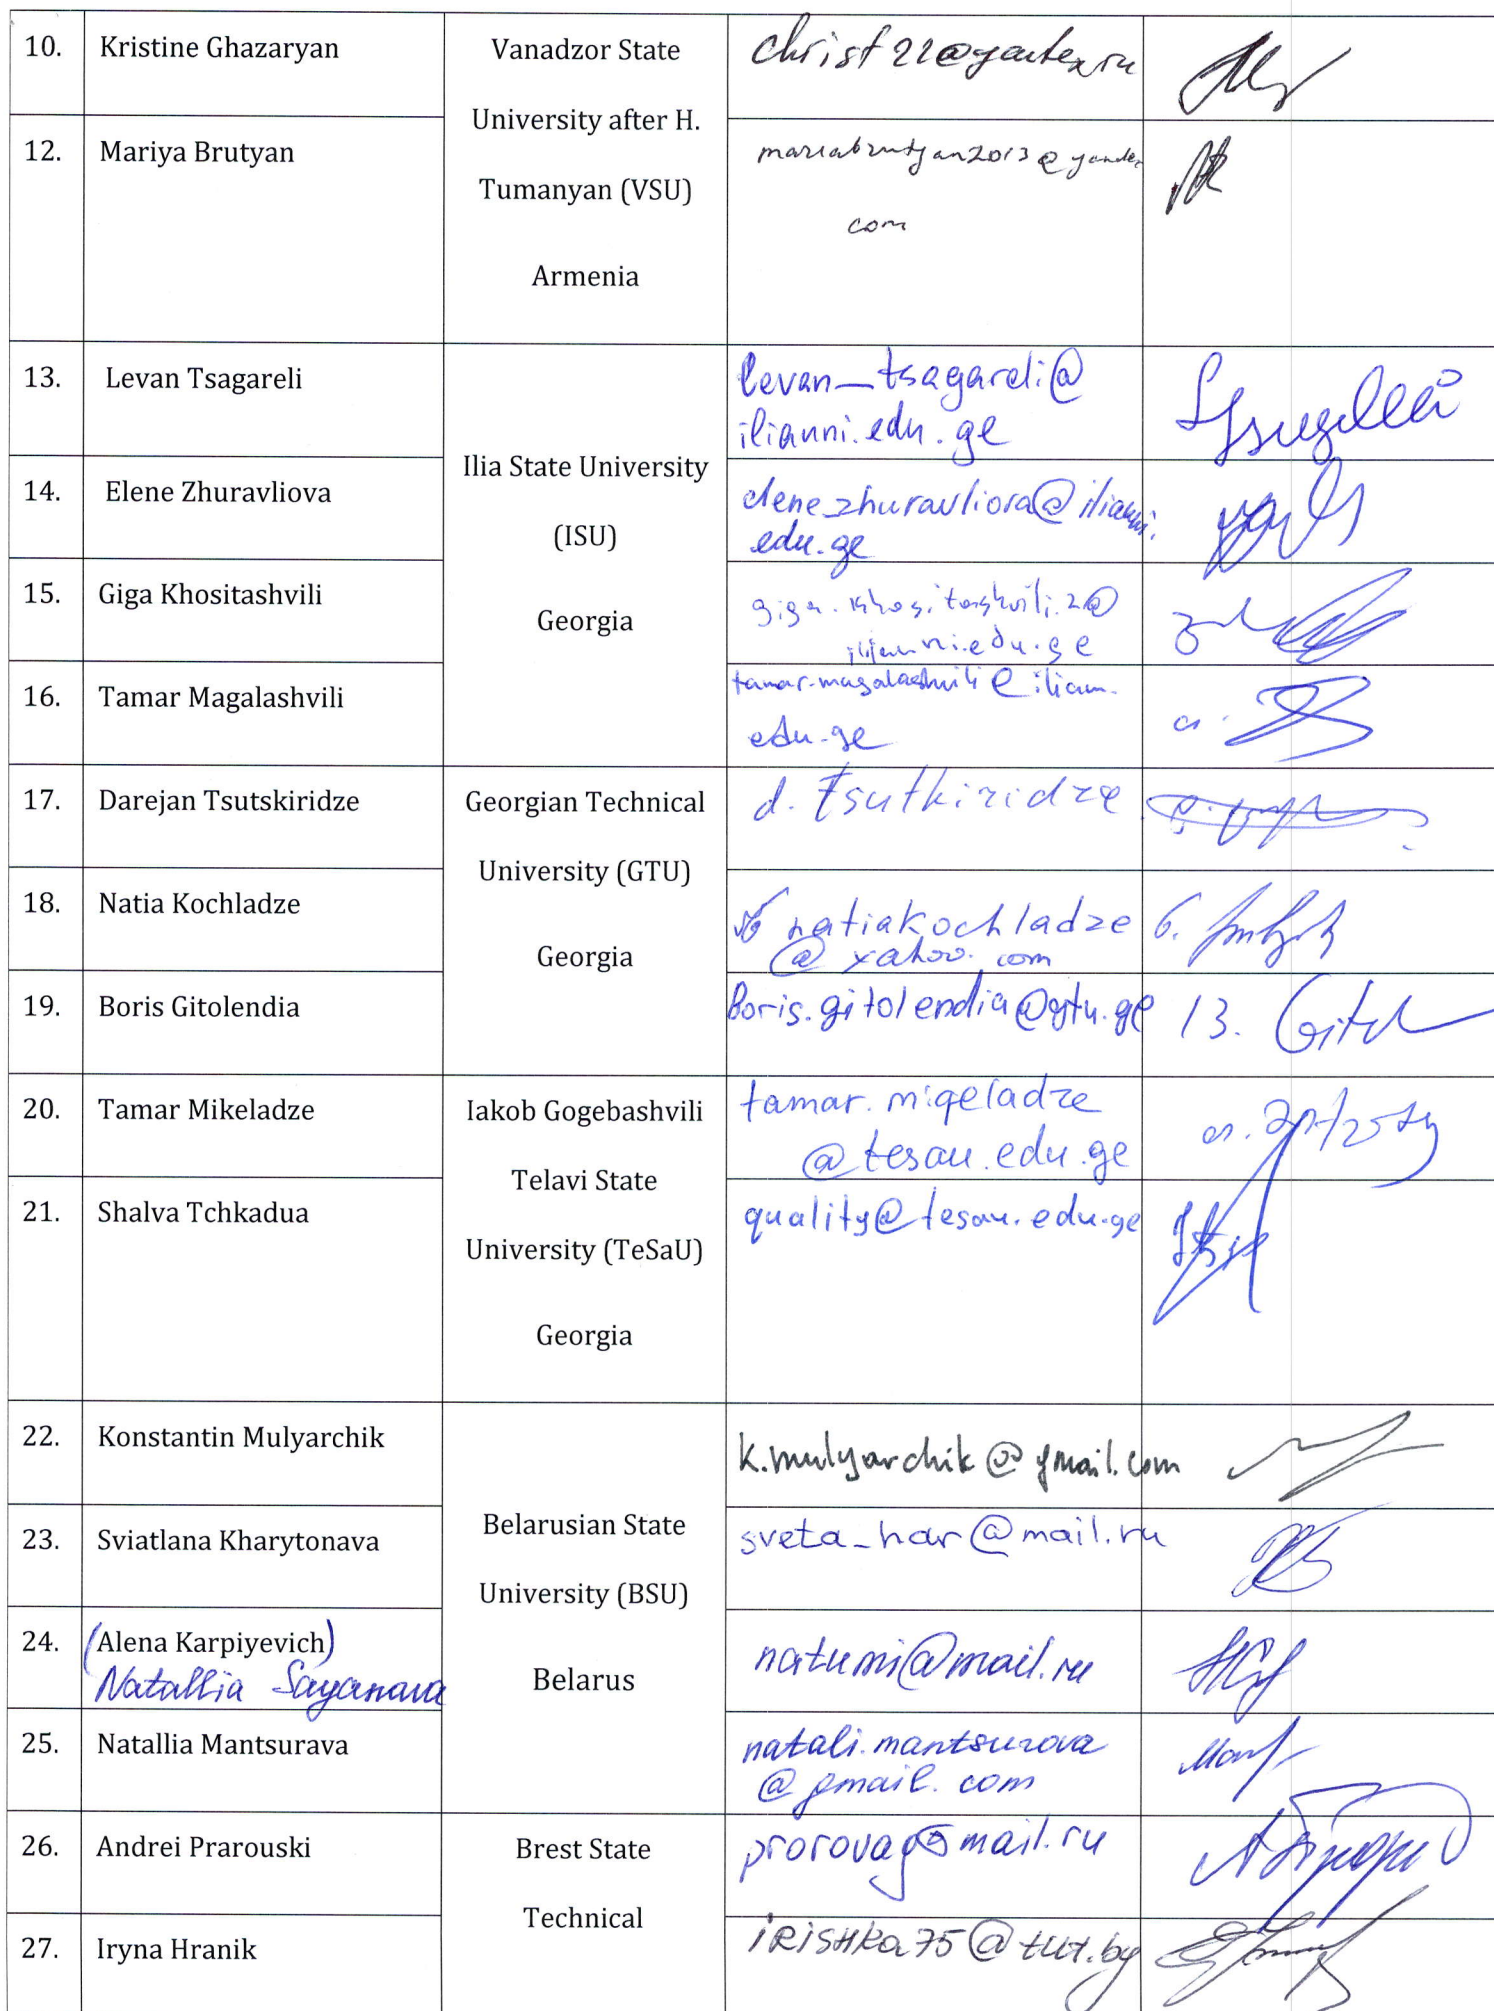 10. Kristine Ghazaryan
Vanadzor State
University after H.
Tumanyan (VSU)
Armenia
christ22@yandex.ru
12. Mariya Brutyan
mariabrutyan2013@yandex
com
13. Levan Tsagareli
Ilia State University
(ISU)
Georgia
levan_tsagareli@
iliauni.edu.ge
14. Elene Zhuravliova
elene_zhuravliova@iliauni.
edu.ge
15. Giga Khositashvili
giga.khositashvili.2@
iliauni.edu.ge
16. Tamar Magalashvili
tamar.magalashvili@iliauni.
edu.ge
17. Darejan Tsutskiridze
Georgian Technical
University (GTU)
Georgia
d. Tsutkiridze
18. Natia Kochladze
natiakochladze
@yahoo.com
19. Boris Gitolendia
Boris.gitolendia@gtu.ge
20. Tamar Mikeladze
Iakob Gogebashvili
Telavi State
University (TeSaU)
Georgia
tamar.miqeladze
@tesau.edu.ge
21. Shalva Tchkadua
quality@tesau.edu.ge
22. Konstantin Mulyarchik
Belarusian State
University (BSU)
Belarus
k.mulyarchik@gmail.com
23. Sviatlana Kharytonava
sveta_har@mail.ru
24. (Alena Karpiyevich)
Natallia Sayanava
natumi@mail.ru
25. Natallia Mantsurava
natali.mantsurova
@gmail.com
26. Andrei Prarouski
Brest State
Technical
prorovag@mail.ru
27. Iryna Hranik
iRiSHka75@tut.by